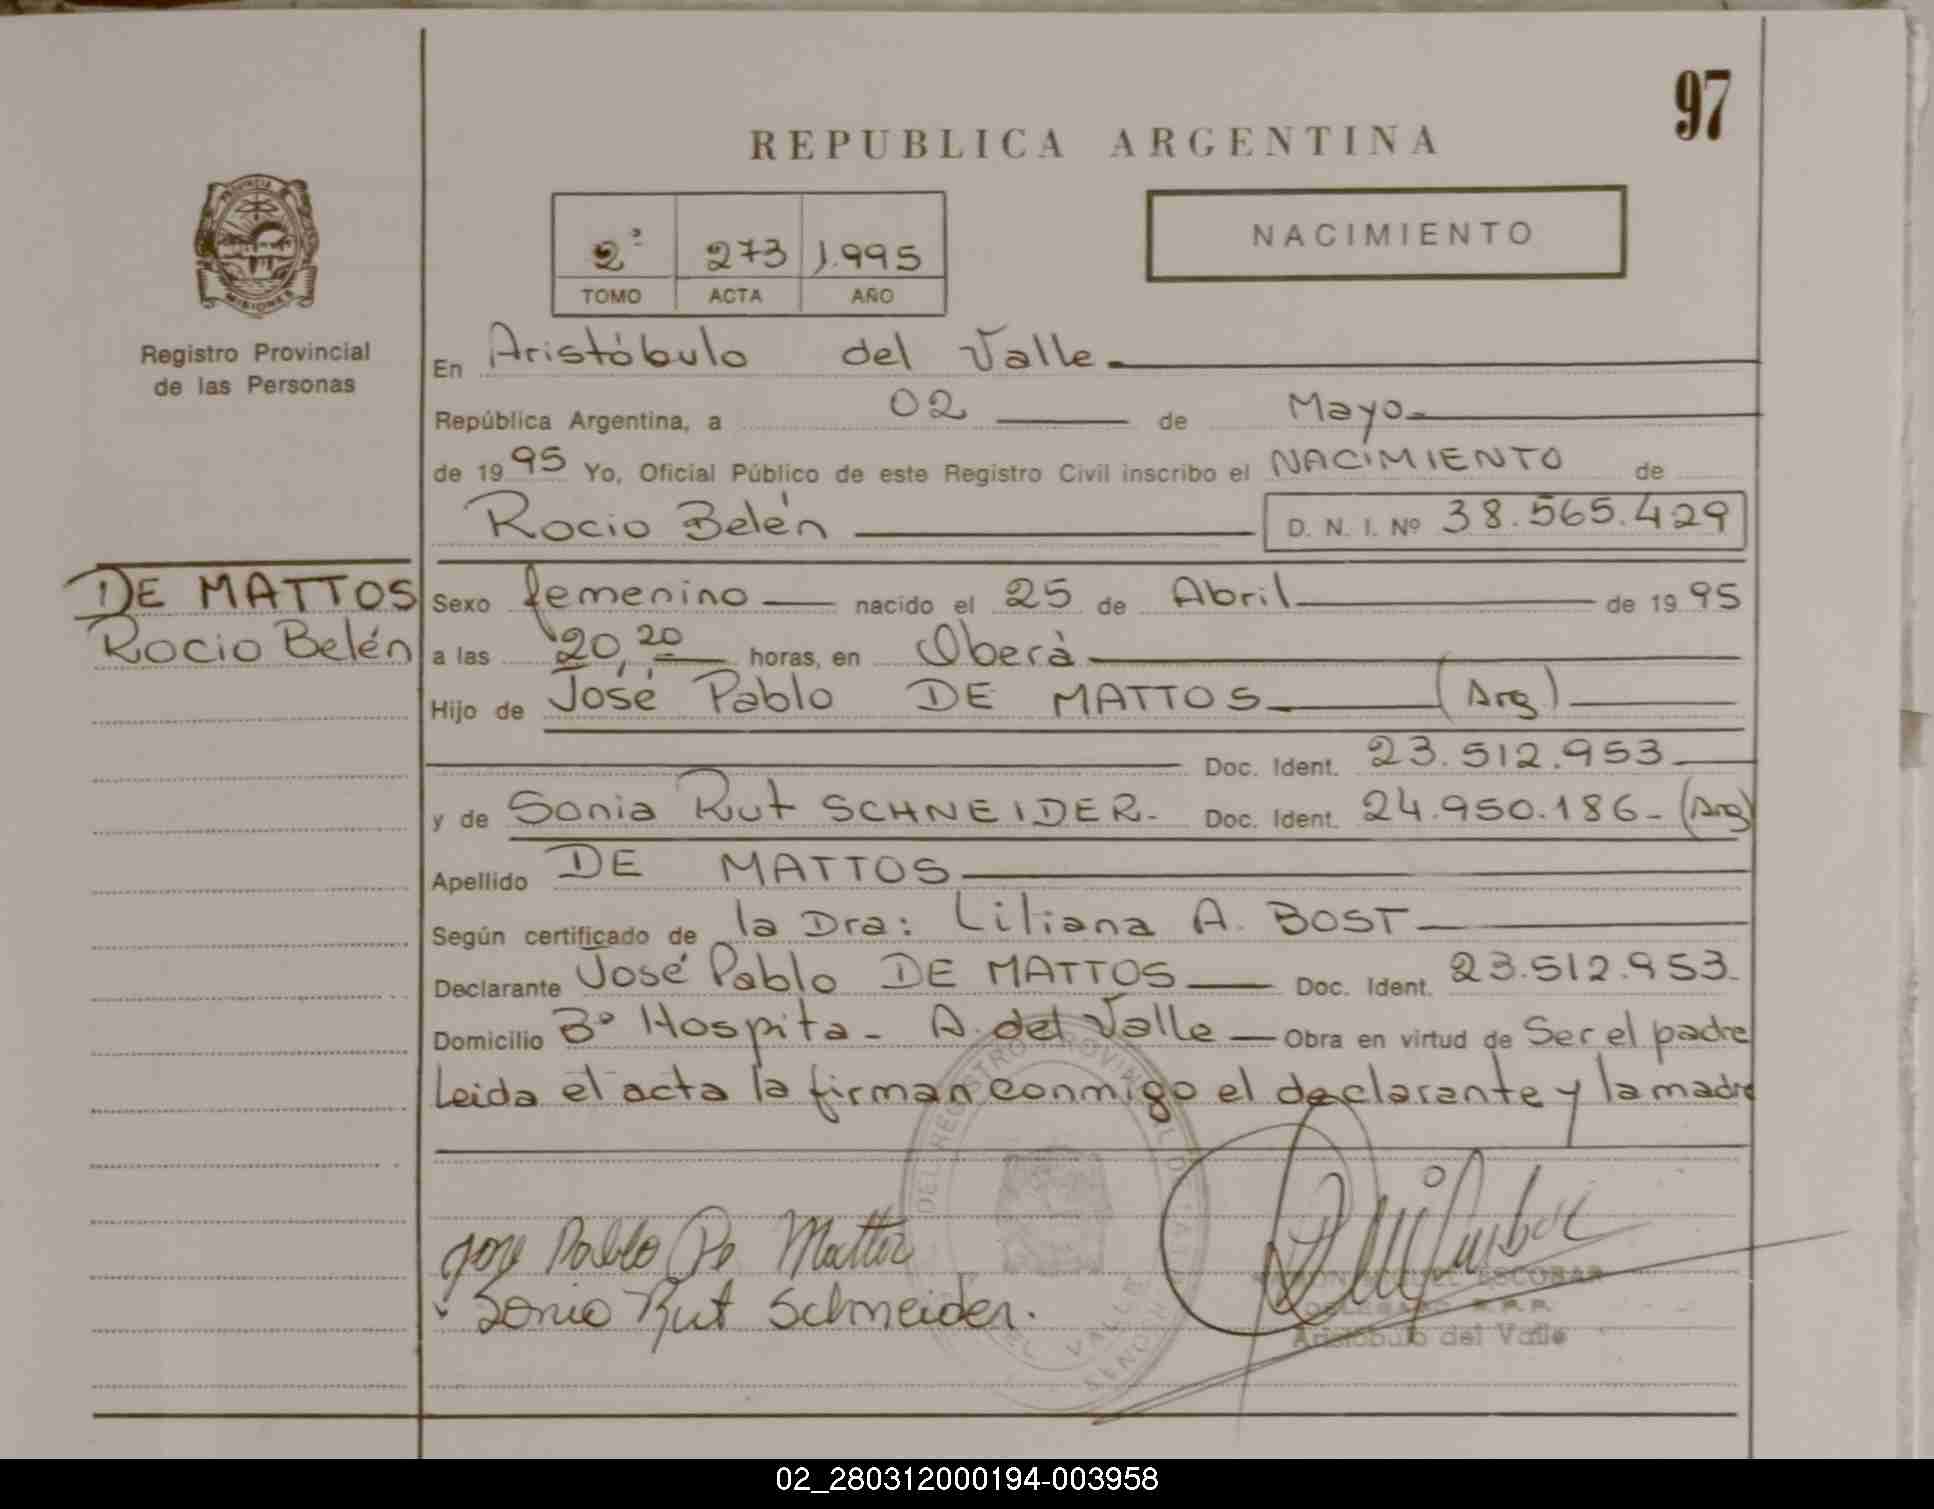 97
REPUBLICA ARGENTINA
PROVINCIA
MISIONES
Registro Provincial
de las Personas
2º 273 1.995
TOMO ACTA AÑO
NACIMIENTO
En Aristóbulo del Valle
República Argentina, a 02 de Mayo
de 1995 Yo, Oficial Público de este Registro Civil inscribo el NACIMIENTO de
Rocio Belén D. N. I. Nº 38.565.429
DE MATTOS
Rocio Belén
Sexo femenino nacido el 25 de Abril de 1995
a las 20,20 horas, en Oberá
Hijo de José Pablo DE MATTOS (Arg)
Doc. Ident. 23.512.953
y de Sonia Rut SCHNEIDER.- Doc. Ident. 24.950.186- (Arg)
Apellido DE MATTOS
Según certificado de la Dra: Liliana A. BOST
Declarante José Pablo DE MATTOS Doc. Ident. 23.512.953-
Domicilio Bº Hospita- A. del Valle Obra en virtud de Ser el padre
Leida el acta la firman conmigo el declarante y la madre
Jose Pablo De Mattos
Sonia Rut Schneider.
ESCOBAR
DELEGADO R.P.P.
Aristóbulo del Valle
02_280312000194-003958